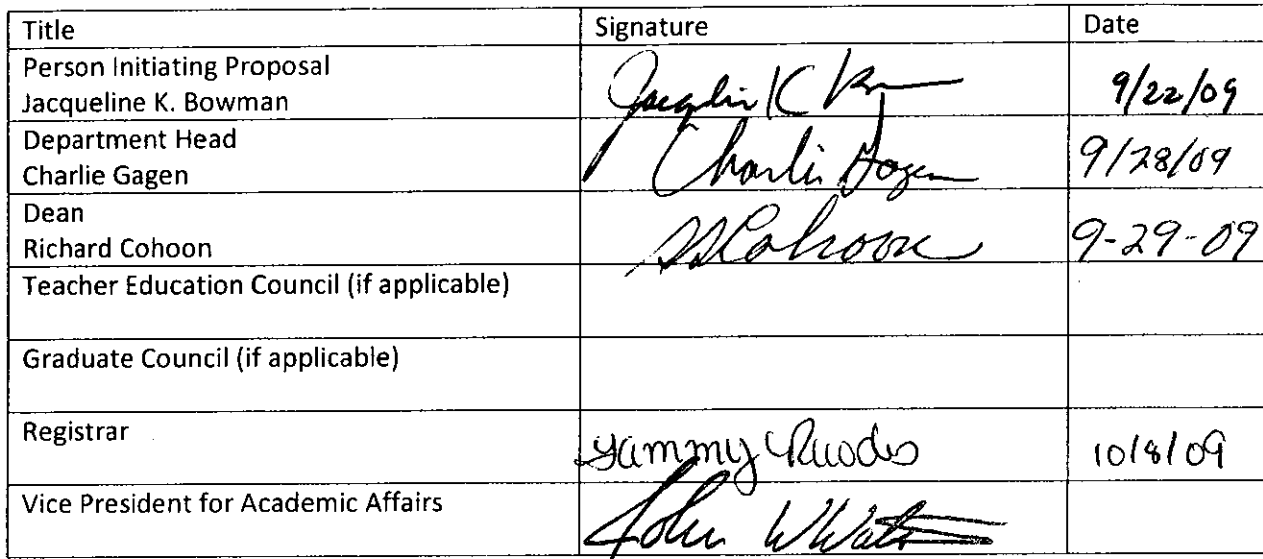 Title Signature Date
Person Initiating Proposal
Jacqueline K. Bowman Jacquelin K 9/22/09
Department Head
Charlie Gagen Charlie Gagen 9/28/09
Dean
Richard Cohoon Cohoon 9-29-09
Teacher Education Council (if applicable)
Graduate Council (if applicable)
Registrar Tammy Rhodes 10/8/09
Vice President for Academic Affairs John W Wats